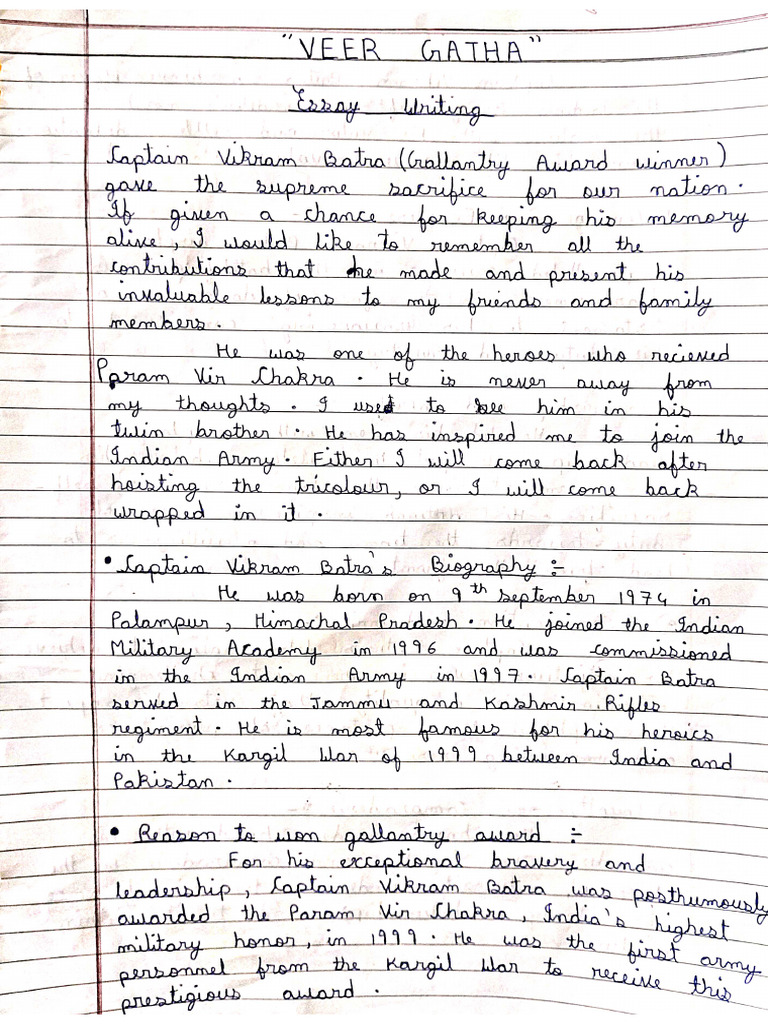 "VEER GATHA"
Essay Writing
Captain Vikram Batra (Gallantry Award winner)
gave the supreme sacrifice for our nation.
If given a chance for keeping his memory
alive, I would like to remember all the
contributions that he made and present his
invaluable lessons to my friends and family
members.
He was one of the heroes who recieved
Param Vir Chakra. He is never away from
my thoughts. I used to see him in his
twin brother. He has inspired me to join the
Indian Army. Either I will come back after
hoisting the tricolour, or I will come back
wrapped in it.
• Captain Vikram Batra's Biography :-
He was born on 9th september 1974 in
Palampur, Himachal Pradesh. He joined the Indian
Military Academy in 1996 and was commissioned
in the Indian Army in 1997. Captain Batra
served in the Jammu and Kashmir Rifles
regiment. He is most famous for his heroics
in the Kargil War of 1999 between India and
Pakistan.
• Reason to won gallantry award :-
For his exceptional bravery and
leadership, Captain Vikram Batra was posthumously
awarded the Param Vir Chakra, India's highest
military honor, in 1999. He was the first army
personnel from the Kargil War to receive this
prestigious award.